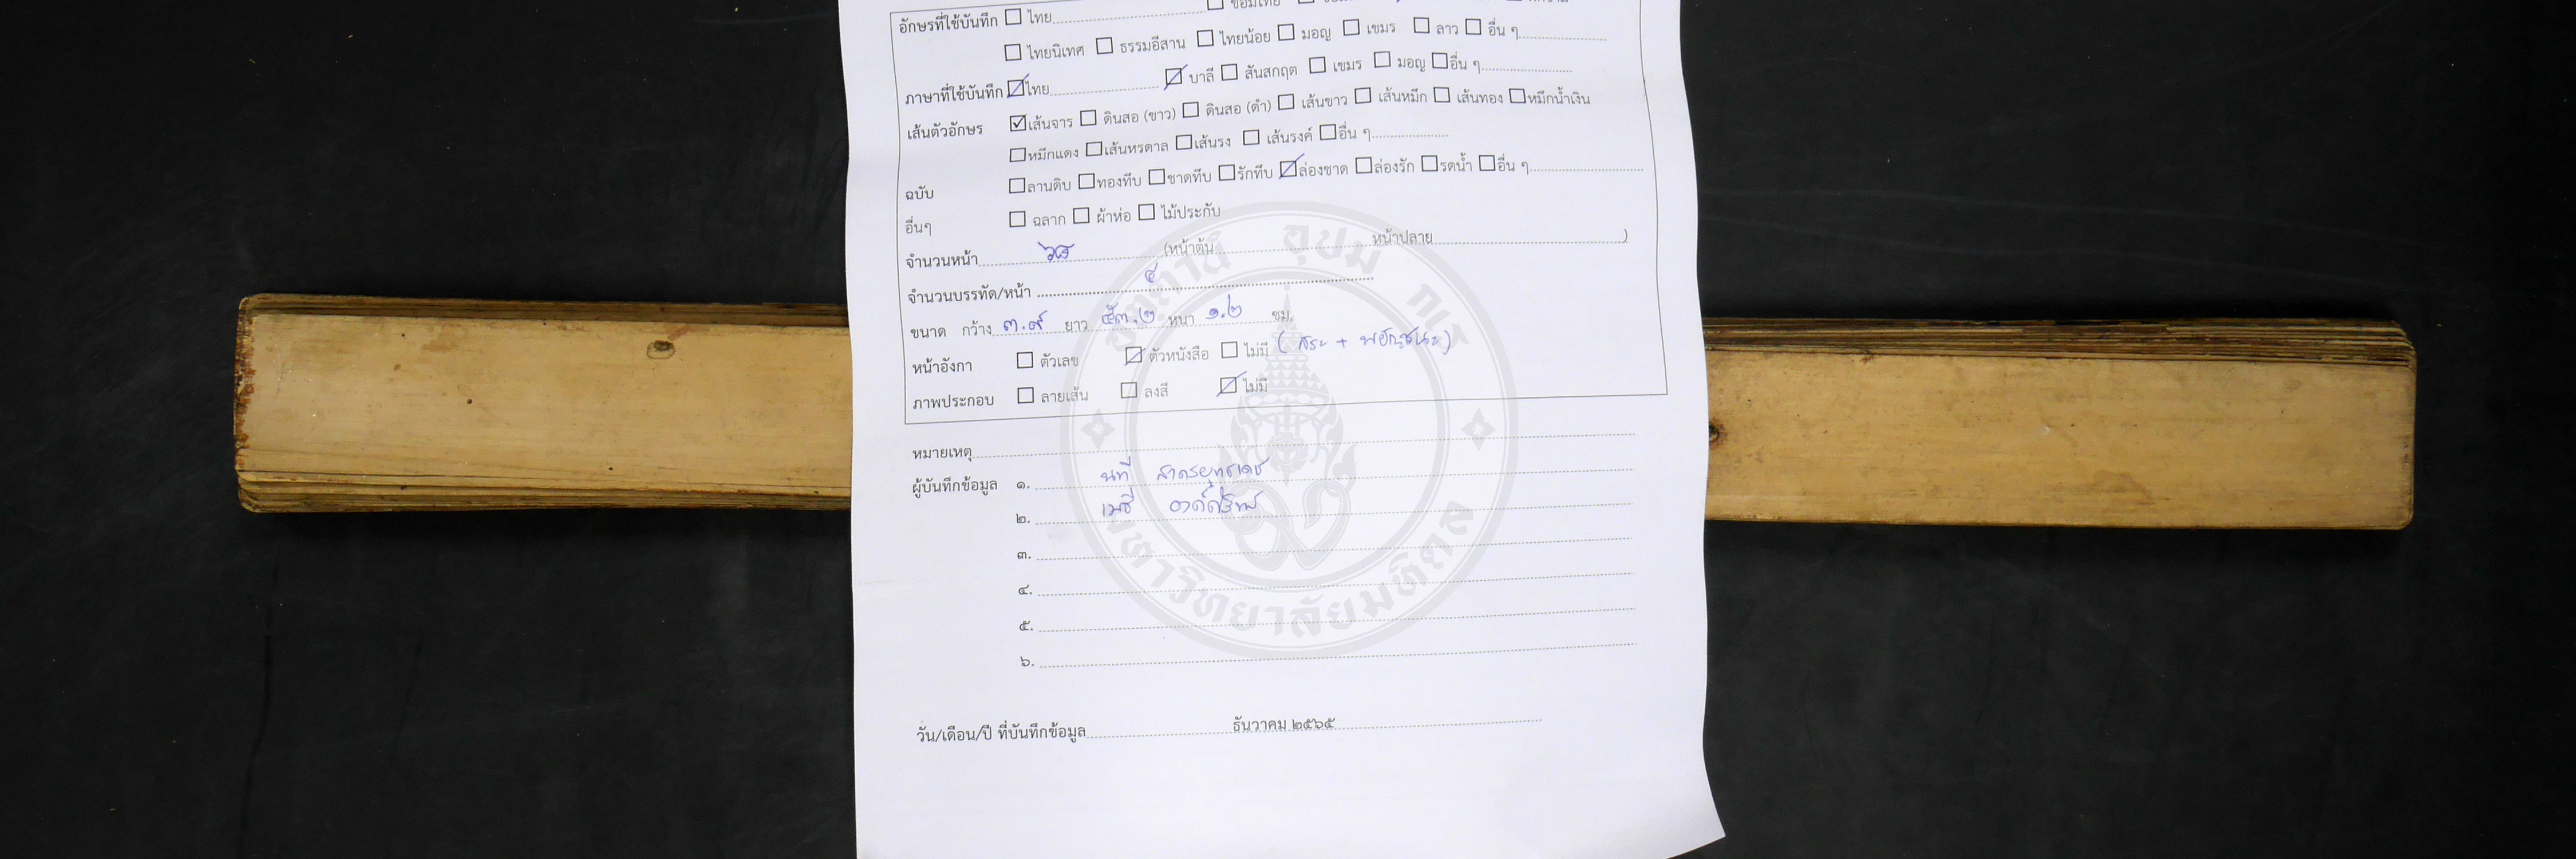 อักษรที่ใช้บันทึก ☐ ไทย.................... ☐ ขอมไทย
☐ ไทยนิเทศ ☐ ธรรมอีสาน ☐ ไทยน้อย ☐ มอญ ☐ เขมร ☐ ลาว ☐ อื่น ๆ....................
ภาษาที่ใช้บันทึก ☑ ไทย.................... ☑ บาลี ☐ สันสกฤต ☐ เขมร ☐ มอญ ☐ อื่น ๆ....................
เส้นตัวอักษร ☑ เส้นจาร ☐ ดินสอ (ขาว) ☐ ดินสอ (ดำ) ☐ เส้นขาว ☐ เส้นหมึก ☐ เส้นทอง ☐ หมึกน้ำเงิน
☐ หมึกแดง ☐ เส้นหรดาล ☐ เส้นรง ☐ เส้นรงค์ ☐ อื่น ๆ....................
ฉบับ ☐ ลานดิบ ☐ ทองทึบ ☐ ชาดทึบ ☐ รักทึบ ☑ ล่องชาด ☐ ล่องรัก ☐ รดน้ำ ☐ อื่น ๆ....................
อื่นๆ ☐ ฉลาก ☐ ผ้าห่อ ☐ ไม้ประกับ
จำนวนหน้า.................... (หน้าต้น.................... หน้าปลาย....................)
จำนวนบรรทัด/หน้า .......... ๕ ..........
ขนาด กว้าง ๓.๙ ยาว ๕๓.๒ หนา ๑.๒ ซม.
หน้าอังกา ☐ ตัวเลข ☑ ตัวหนังสือ ☐ ไม่มี (สระ + พยัญชนะ)
ภาพประกอบ ☐ ลายเส้น ☐ ลงสี ☑ ไม่มี
หมายเหตุ....................
ผู้บันทึกข้อมูล ๑. นที
๒. เมธี
๓. ....................
๔. ....................
๕. ....................
๖. ....................
วัน/เดือน/ปี ที่บันทึกข้อมูล.......... ธันวาคม ๒๕๖๕ ..........
มหาวิทยาลัยมหิดล